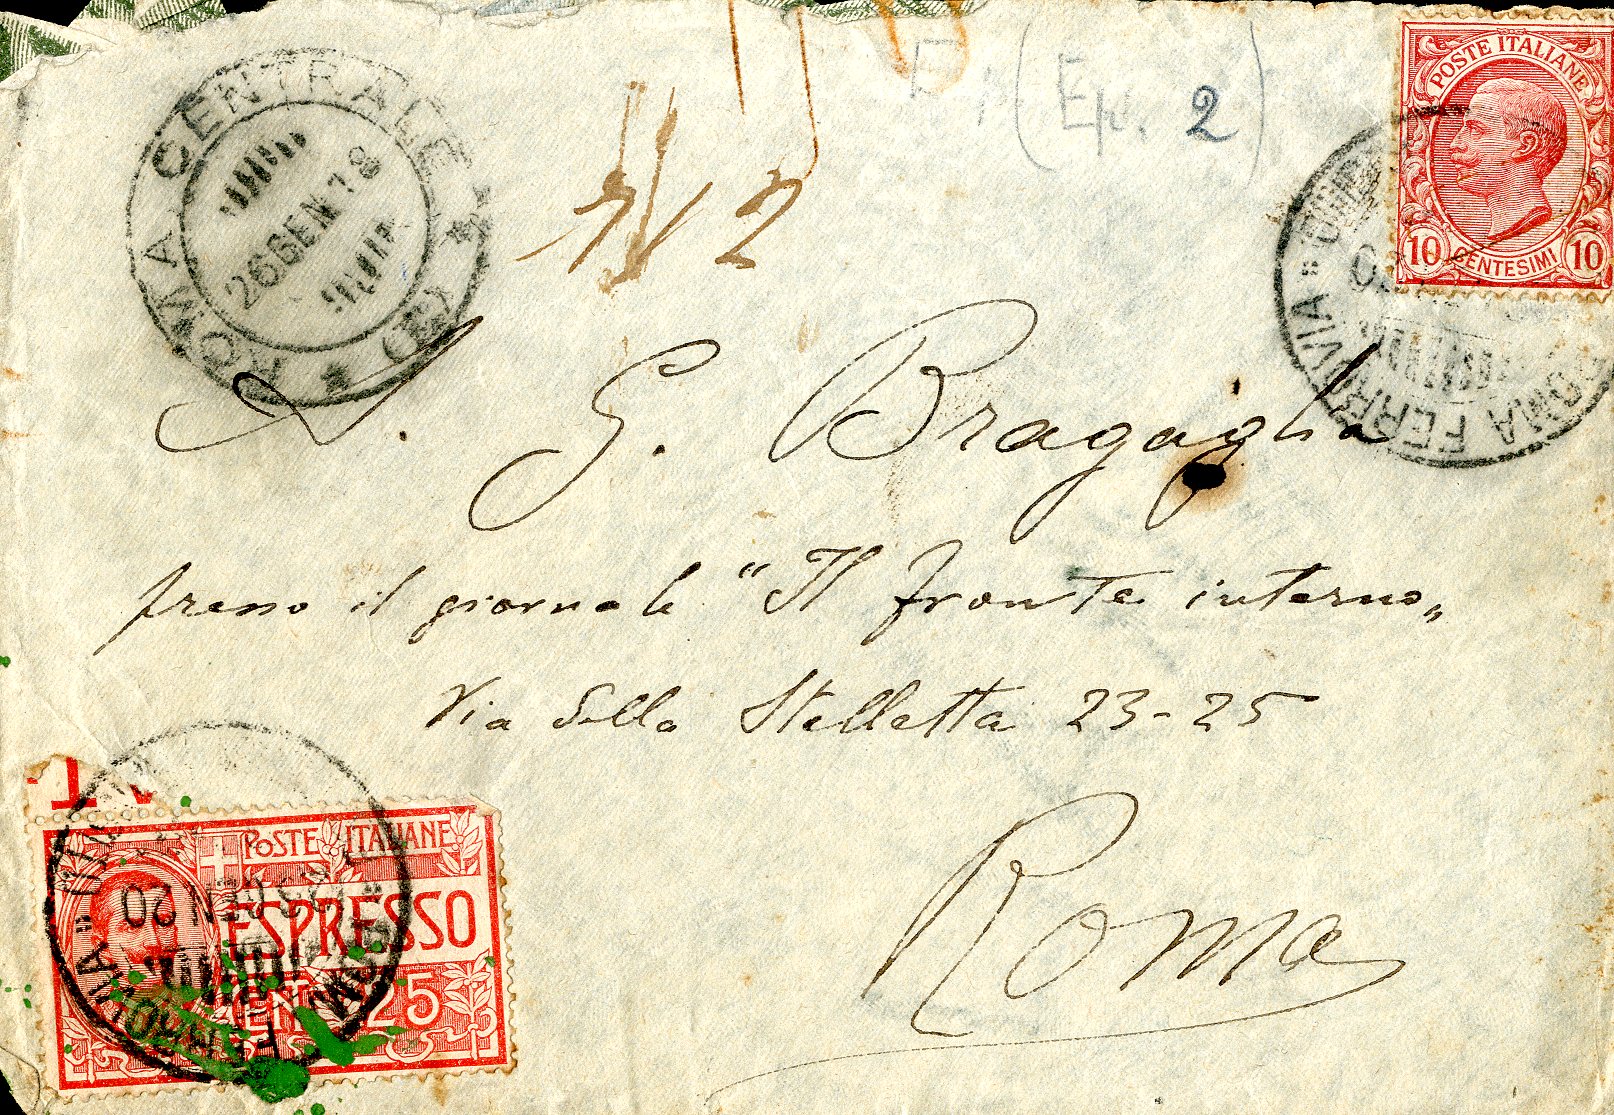 (Ep. 2)
N 2
POSTE ITALIANE
10 CENTESIMI 10
ROMA CENTRALE
26 GEN 18
A. G. Bragaglia
presso il giornale "Il fronte interno„
Via della Stelletta 23-25
Roma
POSTE ITALIANE
ESPRESSO
CENT. 25
ROMA FERROVIA
GEN 20
ROMA FERROVIA